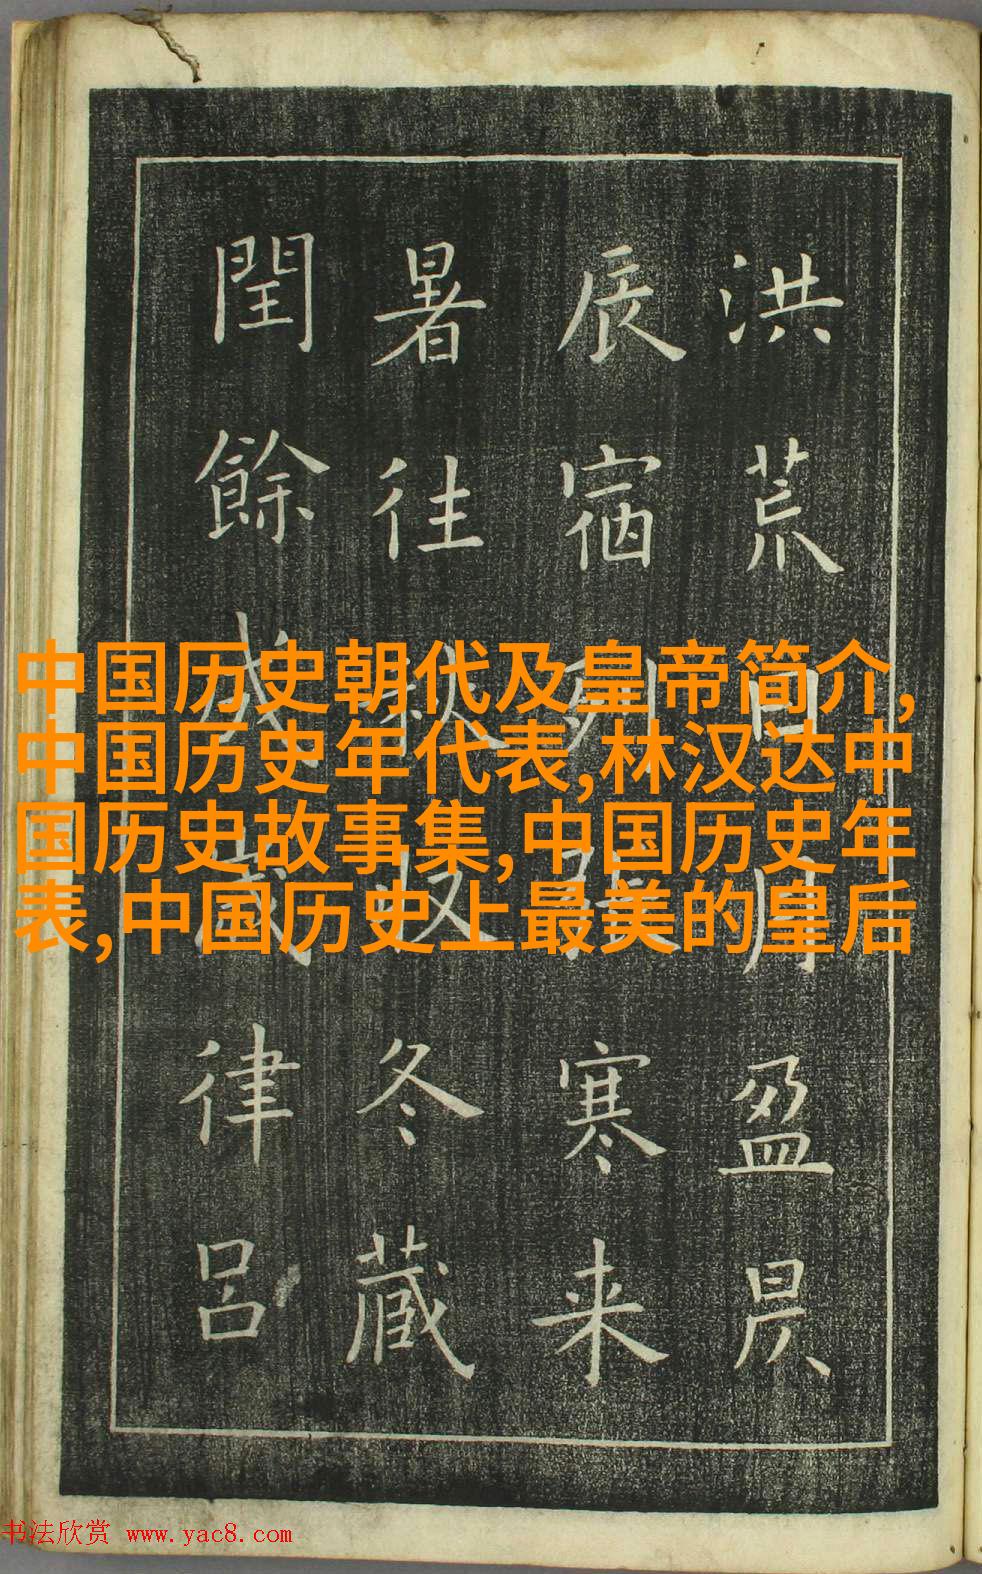 洪荒日月盈昃
辰宿列張寒来
暑往秋收冬藏
閏餘成歲律吕
中国历史朝代及皇帝简介,
中国历史年代表,林汉达中
国历史故事集,中国历史年
表,中国历史上最美的皇后
书法欣赏 www.yac8.com